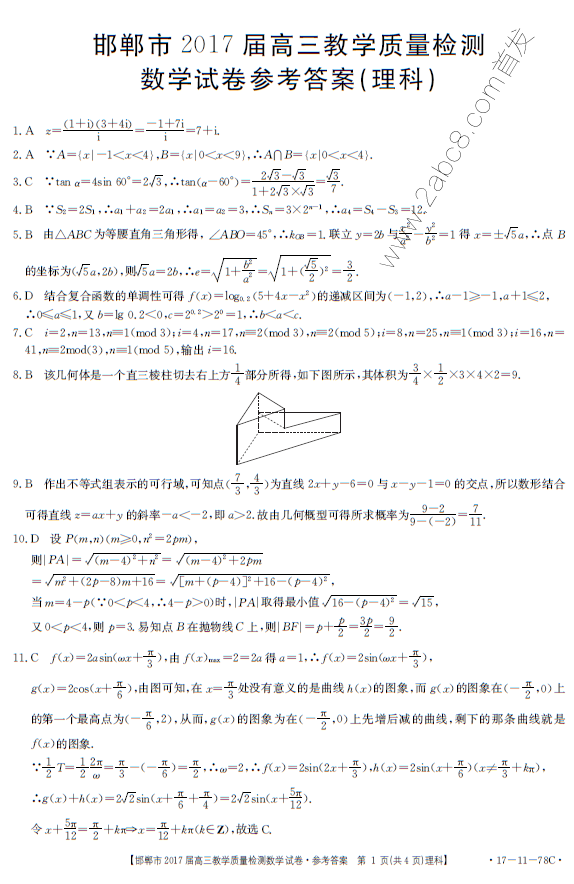 邯郸市 2017 届高三教学质量检测
数学试卷参考答案(理科)
www.2abc8.com首发
1. A z=(1+i)(3+4i)/i=(-1+7i)/i=7+i.
2. A ∵A={x|-1<x<4},B={x|0<x<9},∴A∩B={x|0<x<4}.
3. C ∵tan α=4sin 60°=2√3,∴tan(α-60°)=(2√3-√3)/(1+2√3×√3)=√3/7.
4. B ∵S₂=2S₁,∴a₁+a₂=2a₁,∴a₁=a₂=3,∴Sₙ=3×2ⁿ⁻¹,∴a₄=S₄-S₃=12.
5. B 由△ABC 为等腰直角三角形得,∠ABO=45°,∴k_OB=1.联立 y=2b 与x²/a²-y²/b²=1 得 x=±√5a,∴点 B
的坐标为(√5a,2b),则√5a=2b,∴e=√(1+b²/a²)=√(1+(√5/2)²)=3/2.
6. D 结合复合函数的单调性可得 f(x)=log₀.₂(5+4x-x²)的递减区间为(-1,2),∴a-1≥-1,a+1≤2,
∴0≤a≤1,又 b=lg 0.2<0,c=2⁰·²>2⁰=1,∴b<a<c.
7. C i=2,n=13,n≡1(mod 3);i=4,n=17,n≡2(mod 3),n≡2(mod 5);i=8,n=25,n≡1(mod 3);i=16,n=
41,n≡2mod(3),n≡1(mod 5),输出 i=16.
8. B 该几何体是一个直三棱柱切去右上方1/4部分所得,如下图所示,其体积为3/4×1/2×3×4×2=9.
9. B 作出不等式组表示的可行域,可知点(7/3,4/3)为直线 2x+y-6=0 与 x-y-1=0 的交点,所以数形结合
可得直线 z=ax+y 的斜率-a<-2,即 a>2.故由几何概型可得所求概率为(9-2)/(9-(-2))=7/11.
10. D 设 P(m,n)(m≥0,n²=2pm),
则|PA|=√((m-4)²+n²)=√((m-4)²+2pm)
=√(m²+(2p-8)m+16)=√([m+(p-4)]²+16-(p-4)²),
当 m=4-p(∵0<p<4,∴4-p>0)时,|PA|取得最小值√(16-(p-4)²)=√15,
又 0<p<4,则 p=3.易知点 B 在抛物线 C 上,则|BF|=p+p/2=3p/2=9/2.
11. C f(x)=2asin(ωx+π/3),由 f(x)max=2=2a 得 a=1,∴f(x)=2sin(ωx+π/3),
g(x)=2cos(x+π/6),由图可知,在 x=π/3处没有意义的是曲线 h(x)的图象,而 g(x)的图象在(-π/2,0)上
的第一个最高点为(-π/6,2),从而,g(x)的图象为在(-π/2,0)上先增后减的曲线,剩下的那条曲线就是
f(x)的图象.
∵1/2T=1/2 2π/ω=π/3-(-π/6)=π/2,∴ω=2,∴f(x)=2sin(2x+π/3),h(x)=2sin(x+π/6)(x≠π/3+kπ),
∴g(x)+h(x)=2√2sin(x+π/6+π/4)=2√2sin(x+5π/12).
令 x+5π/12=π/2+kπ⇒x=π/12+kπ(k∈Z),故选 C.
【邯郸市 2017 届高三教学质量检测数学试卷·参考答案 第 1 页(共 4 页)理科】 ·17-11-78C·